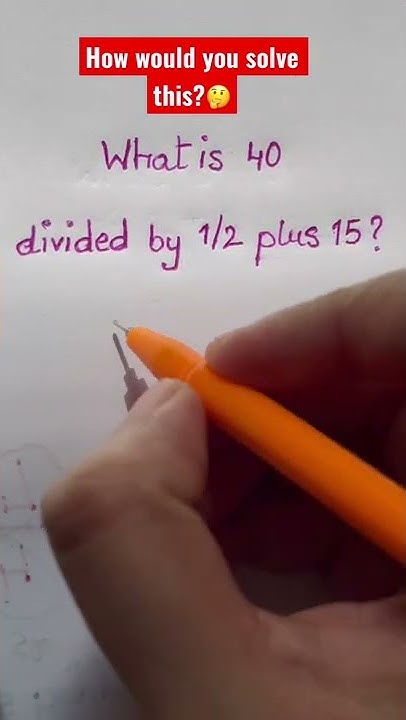 How would you solve
this?🤔
What is 40
divided by 1/2 plus 15?